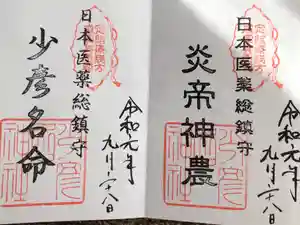 日本医薬総鎮守
炎帝神農
令和元年
九月二十八日
日本医薬総鎮守
少彦名命
令和元年
九月二十八日